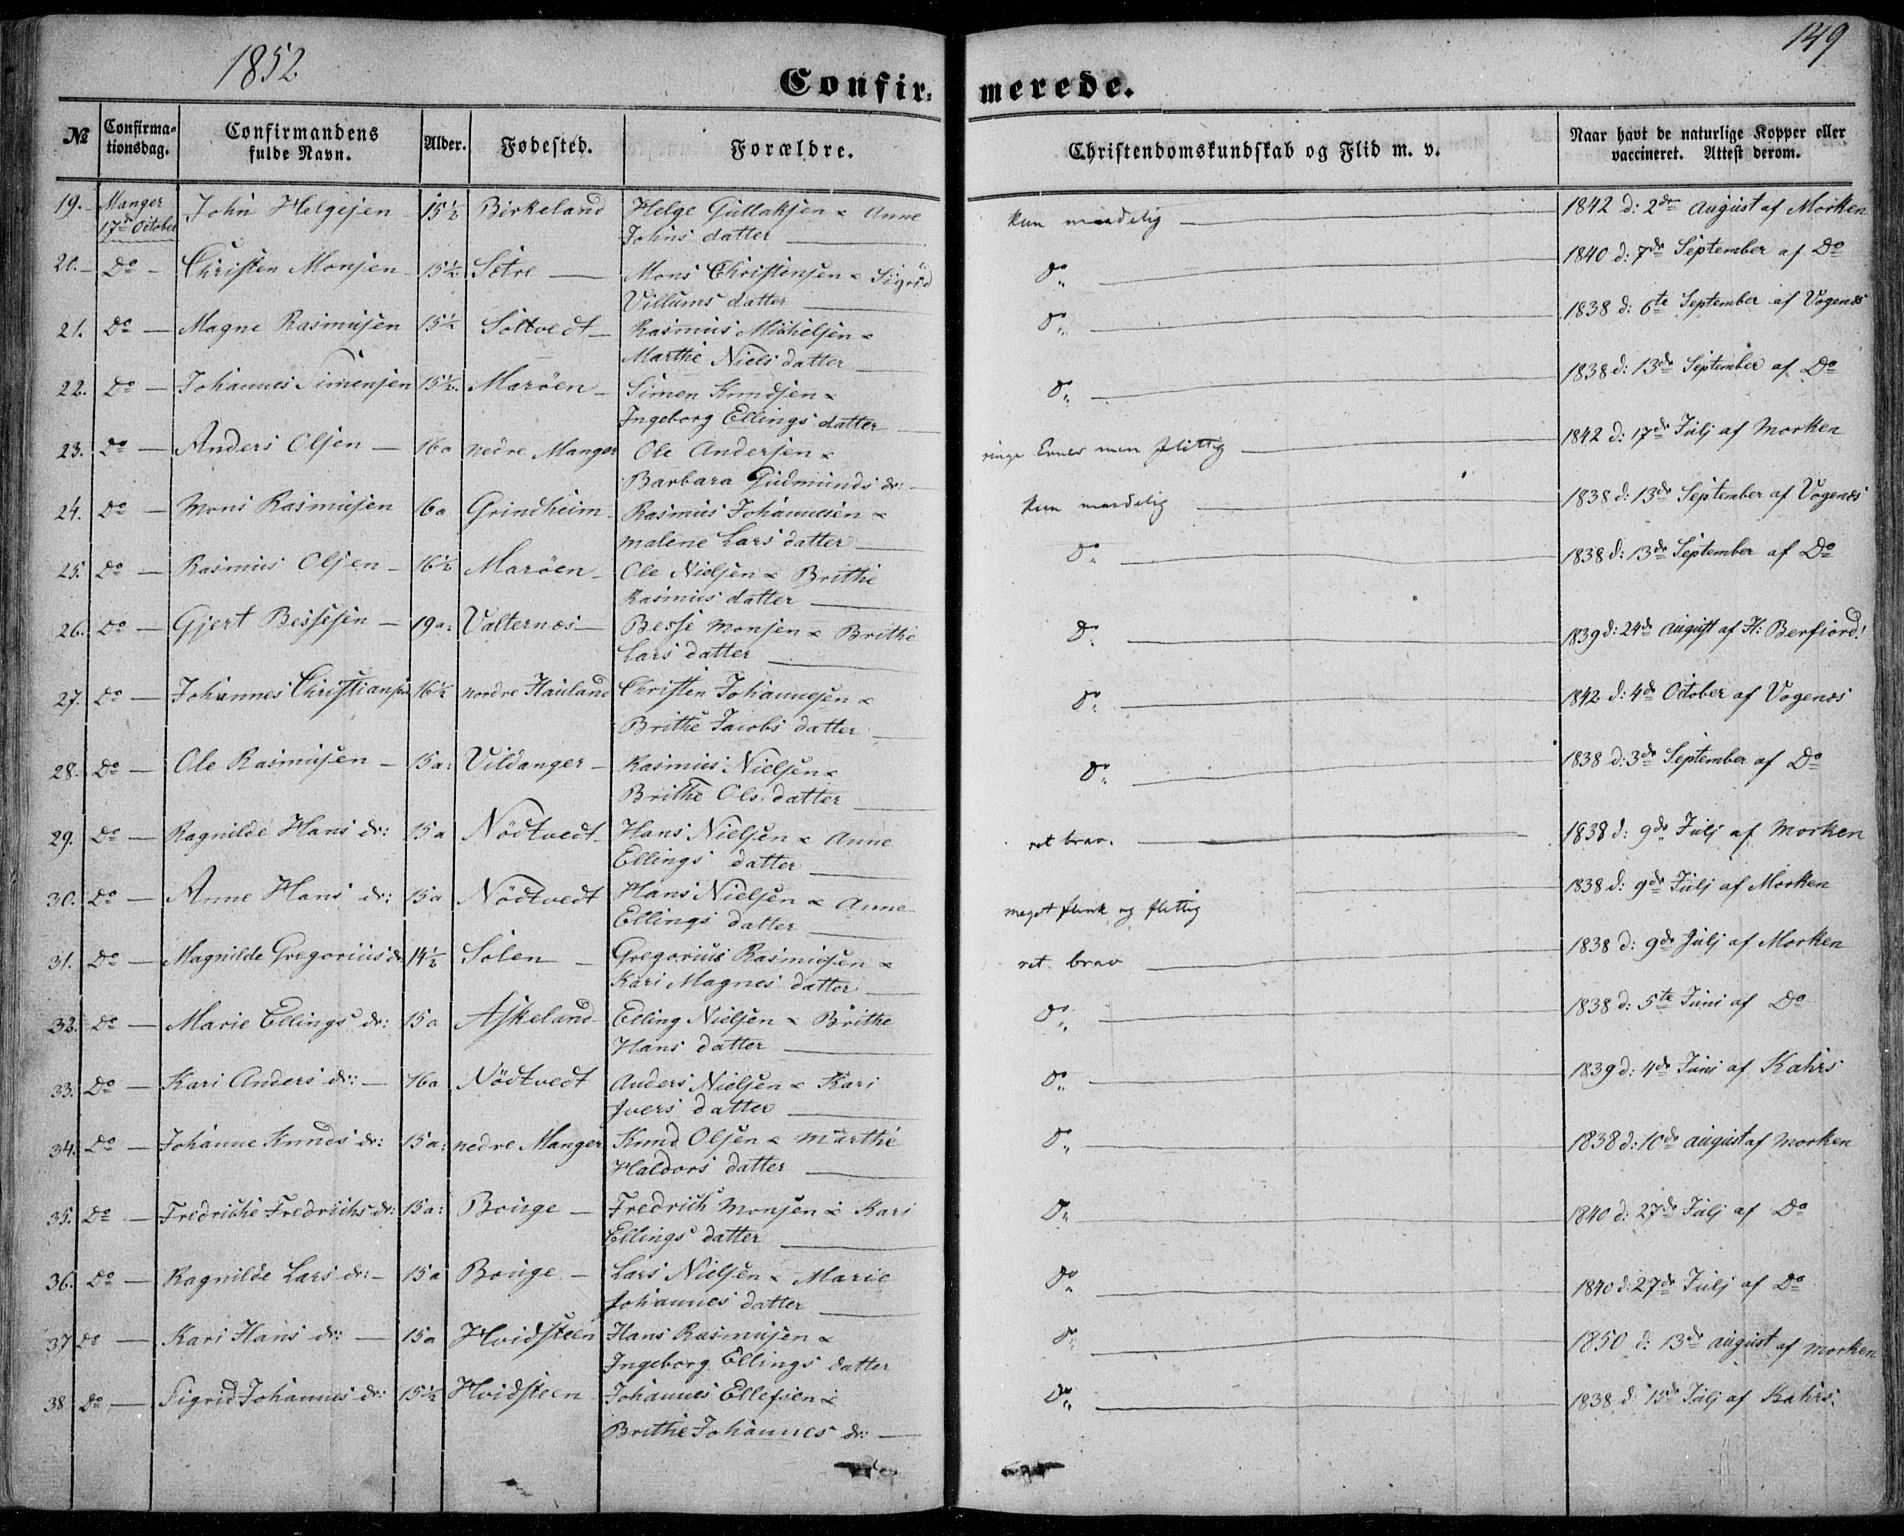 1852
149
Confir-merede.
№ | Confirmationsdag. | Confirmandens fulde Navn. | Alder. | Fødested. | Forældre. | Christendomskundskab og Flid m. v. | Naar havt de naturlige Kopper eller vaccineret. Attest derom.
19. Manger 17de October John Helgesen 15½ Birkeland Helge Gullaksen & Anne Johns datter kun maadelig 1842 d: 2den August af Morken
20. Do Christen Monsen 15½ Sætre Mons Christensen & Sigrid Villums datter Do 1840 d: 7de September af Do
21. Do Magne Rasmusen 15½ Soltvedt Rasmus Mickelsen & Marthe Niels datter Do 1838 d: 6te September af Vogenæs
22. Do Johannes Simensen 15½ Marøen Simen Knudsen & Ingeborg Ellings datter Do 1838 d: 13de September af Do
23. Do Anders Olsen 16a nedre Manger Ole Andersen & Barbara Gudmunds dr: ringe Evner men flittig 1842 d: 17de Julj af Morken
24. Do Mons Rasmusen 16a Grindheim Rasmus Johannesen & Malene Lars datter kun maadelig 1838 d: 13de September af Vogenæs
25. Do Rasmus Olsen 16½ Marøen Ole Nielsen & Brithe Rasmus datter Do 1838 d: 13de September af Do
26. Do Gjert Bessesen 19a: Valternæs Besse Monsen & Brithe Lars datter Do 1839 d: 24de August af H: Berfiord!
27. Do Johannes Christiansen 16½ nordre Hauland Christen Johannesen & Brithe Jacobs datter Do 1842 d: 4de October af Vogenæs
28. Do Ole Rasmusen 15a: Vildanger Rasmus Nielsen & Brithe Ols datter Do 1838 d: 3de September af Do
29. Do Ragnilde Hans dr: 15a Nödtvedt Hans Nielsen & Anne Ellings datter ret brav. 1838 d: 9de Julj af Morken
30. Do Anne Hans dr: 15a Nödtvedt Hans Nielsen & Anne Ellings datter meget flink og flittig 1838 d: 9de Julj af Morken
31. Do Magnilde Gregorius dr 14½ Solen Gregorius Rasmusen & Kari Magnes datter ret brav 1838 d: 9de Julj af Morken
32. Do Marie Ellings dr: 15a Askeland Elling Nielsen & Brithe Hans datter Do 1838 d: 5te Juni af Do
33. Do Kari Anders dr: 16a Nödtvedt Anders Nielsen & Kari Ivers datter Do 1839 d: 4de Juni af Kahrs
34. Do Johanne Knuds dr: 15a: nedre Manger Knud Olsen & Marthe Haldors datter Do 1838 d: 10de August af Morken
35. Do Fredriche Fredrichs dr: 15a: Bouge Fredrich Monsen & Kari Ellings datter Do 1840 d: 27de Julj af Do
36. Do Ragnilde Lars dr: 15a Bouge Lars Nielsen & Marie Johannes datter Do 1840 d: 27de Julj af Do
37 Do Kari Hans dr: 15a Hvidsteen Hans Rasmusen & Ingeborg Ellings datter Do 1850 d: 13de August af Morken
38 Do Sigrid Johannes dr: 15½ Hvidsteen Johannes Ellefsen & Brithe Johannes dr: Do 1838 d: 15de Julj af Kahrs.